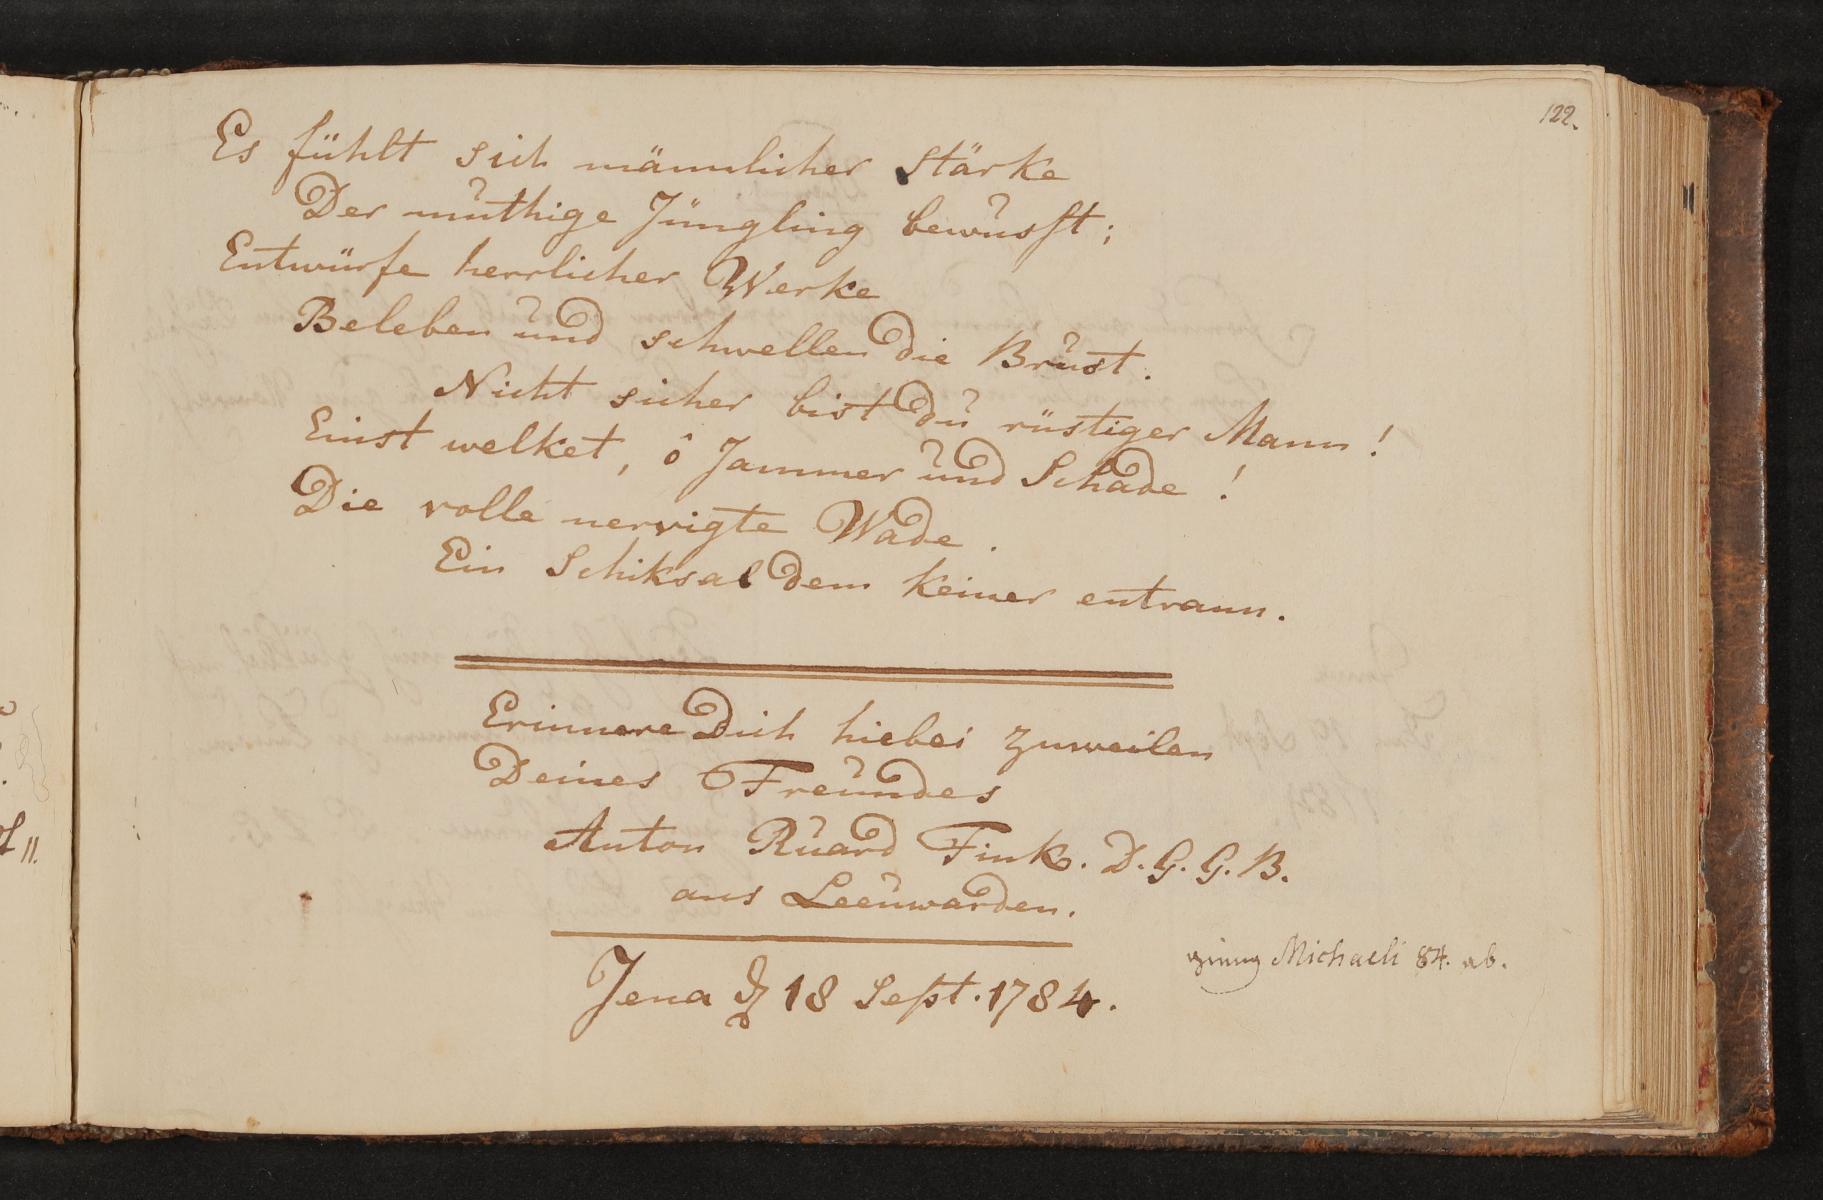 122.
Es fühlt sich männlicher Stärke
Der muthige Jüngling bewusst;
Entwürfe herrlicher Werke
Beleben und schwellen die Brust.
Nicht sicher bist du rüstiger Mann!
Einst welket, ô Jammer und Schade!
Die volle nervigte Wade.
Ein Schiksal dem keiner entrann.
Erinnere Dich hiebei zuweilen
Deines Freundes
Anton Ruard Fink. D. G. G. B.
aus Leeuwarden.
Jena d 18 Sept. 1784.
ging Michaeli 84. ab.